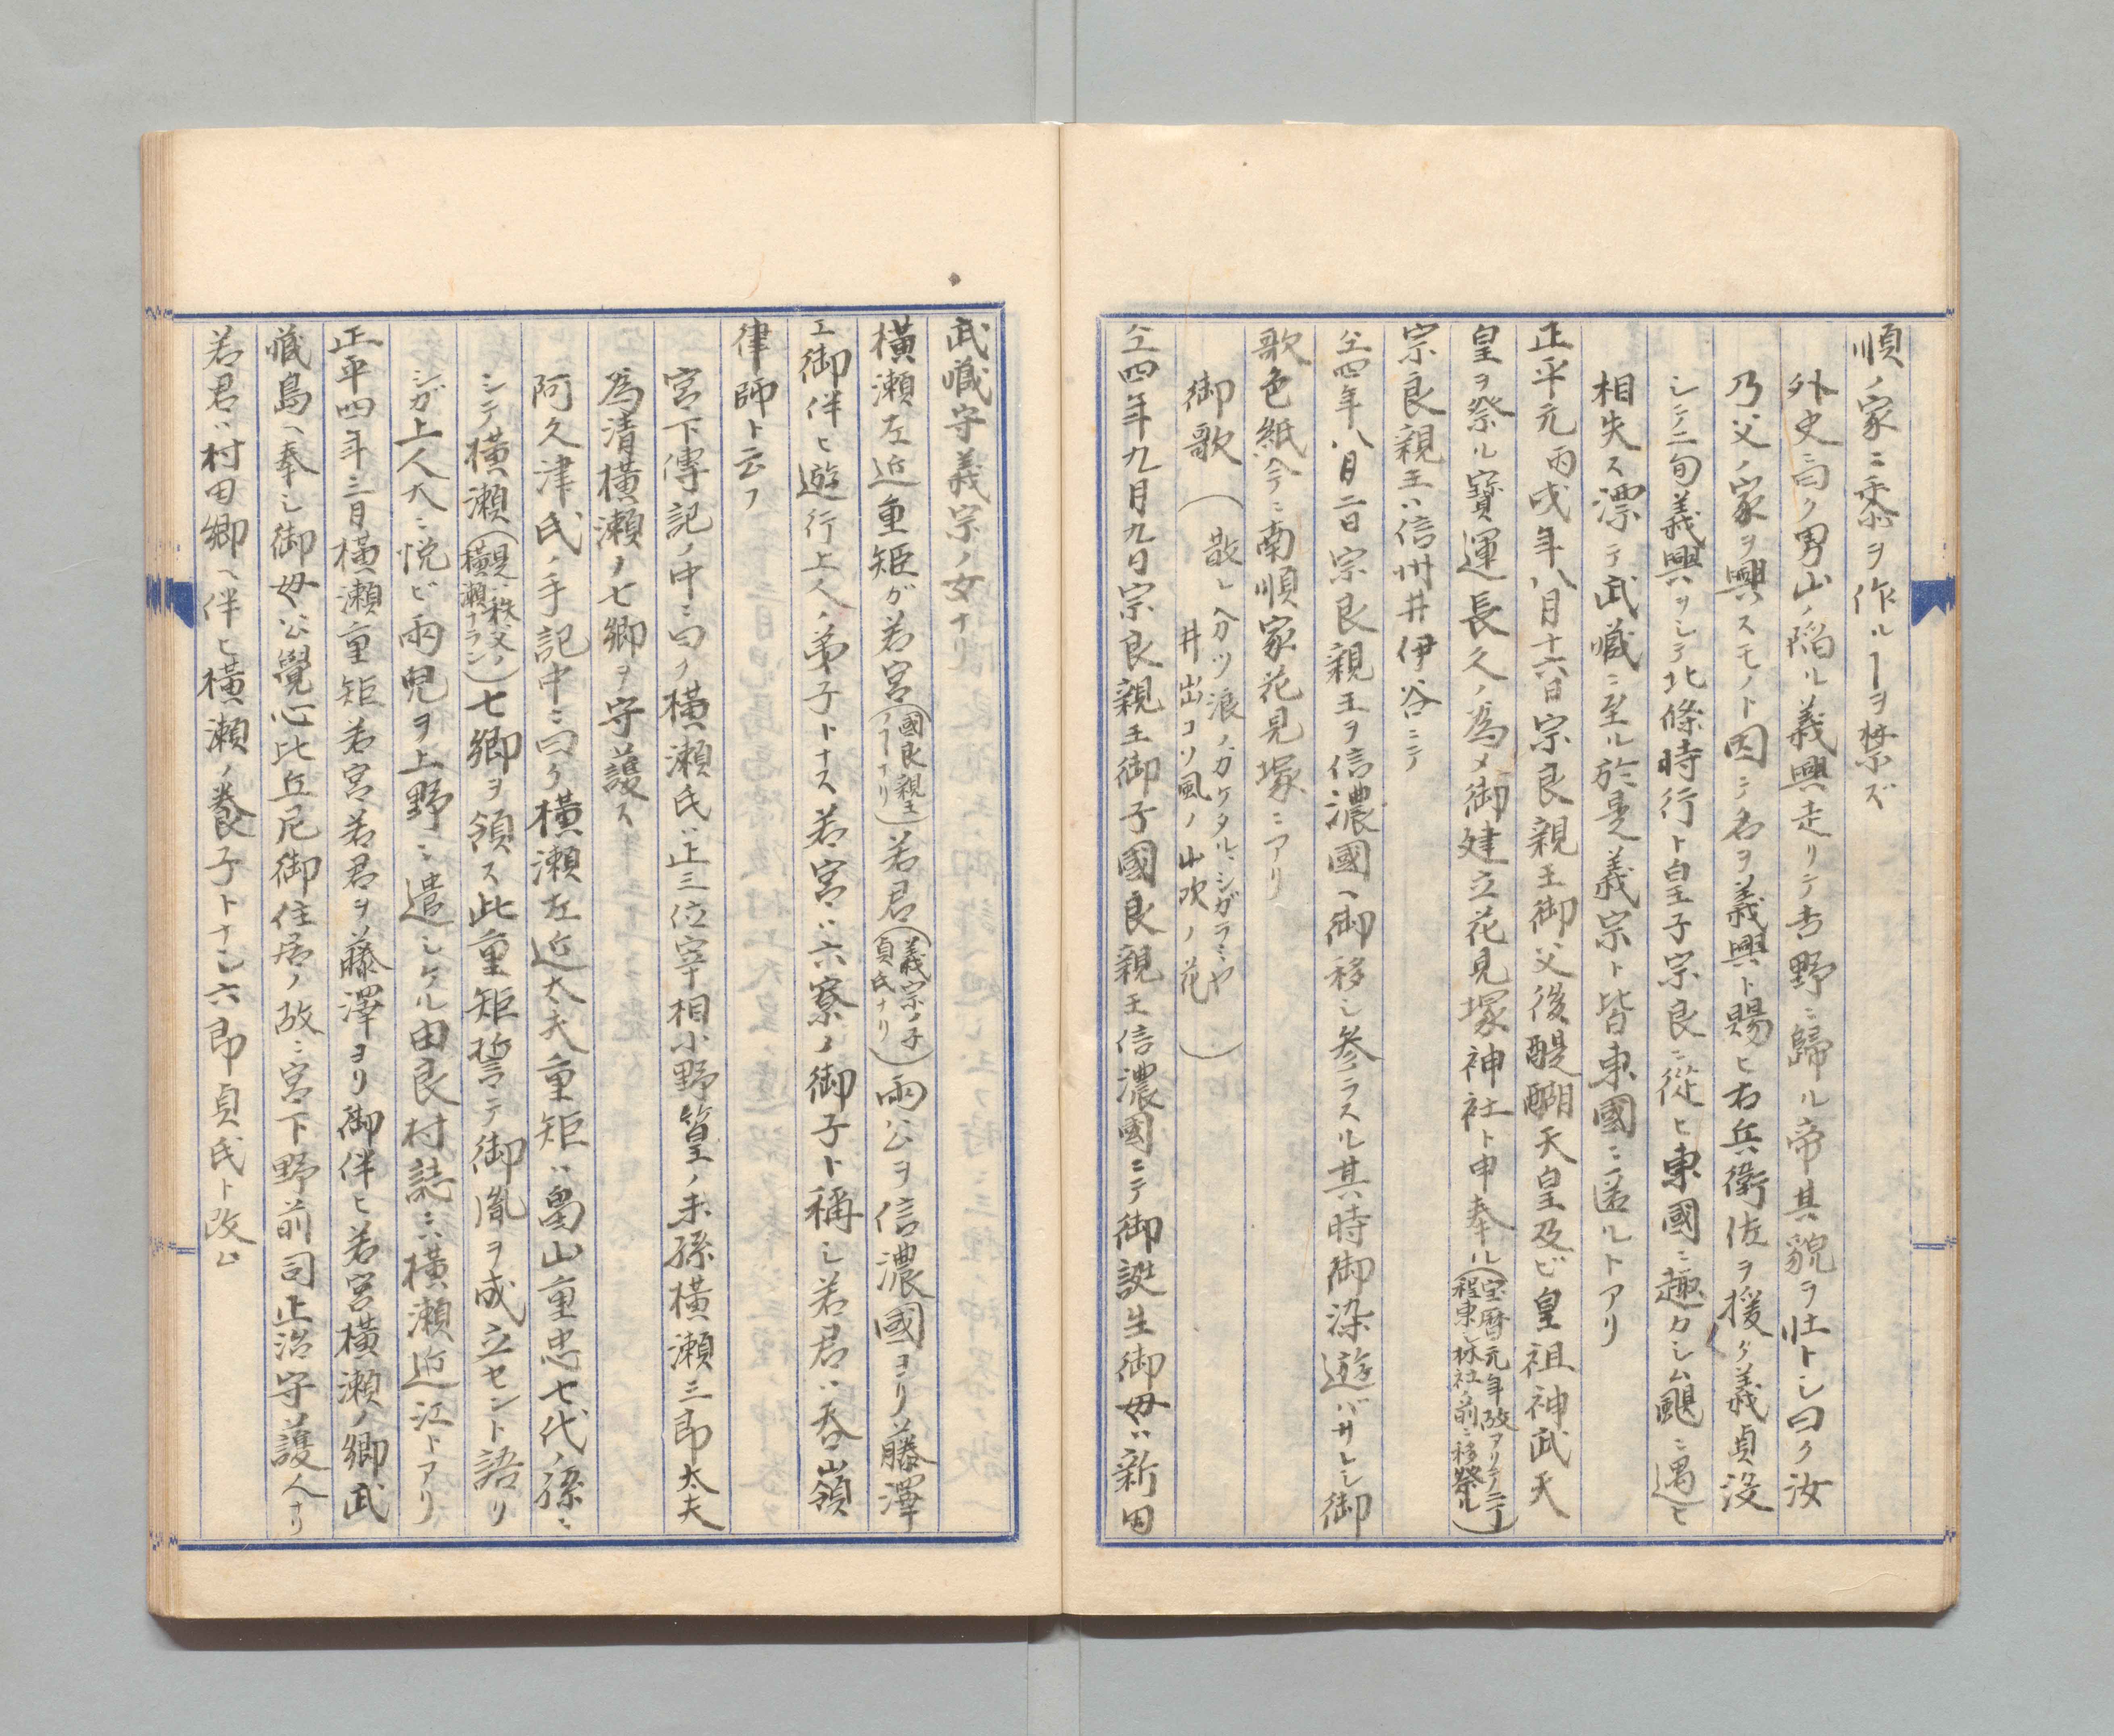 順ノ家ニ桼ヲ作ルヿヲ禁ズ
外史ニ曰ク男山ノ陥ル義興走リテ吉野ニ歸ル帝其貌ヲ壮トシ曰ク汝
乃父ノ家ヲ興スモノト因テ名ヲ義興ト賜ヒ右兵衛佐ヲ援ク義貞没
シテ二旬義興ヲシテ北條時行ト皇子宗良ニ從ヒ東國ニ趣カシム颶ニ遇ヒ
相失ス漂テ武藏ニ至ル於是義宗ト皆東國ニ匿ルトアリ
正平元丙戌年八月十六日宗良親王御父後醍醐天皇及ビ皇祖神武天
皇ヲ祭ル寶運長久ノ為メ御建立花見塚神社ト申奉ル(宝暦元年故アリテ二丁程東シ林社ノ前ニ移祭ル)
宗良親王ハ信州井伊谷ニテ
仝四年八月二日宗良親王ヲ信濃國ヘ御移シ参ラスル其時御染遊バサレシ御
歌色紙今ニ南順家花見塚ニアリ
御歌(散シヘガツ浪ノカケタルシガラミヤ
井出コソ風ノ山吹ノ花)
仝四年九月九日宗良親王御子國良親王信濃國ニテ御誕生御母ハ新田
武藏守義宗ノ女ナリ
横瀬左近重矩ガ若宮(國良親王ノヿナリ)若君(義宗ノ子貞氏ナリ)兩公ヲ信濃國ヨリ藤澤
エ御伴ヒ遊行上人ノ弟子トナス若宮ハ六寮ノ御子ト稱シ若君ハ呑嶺
律師ト云フ
宮下傳記ノ中ニ曰ク横瀬氏ハ正三位宰相小野篁ノ末孫横瀬三郎太夫
為清横瀬ノ七郷ヲ守護ス
阿久津氏ノ手記中ニ曰ク横瀬左近太夫重矩ハ畠山重忠七代ノ孫ニ
シテ横瀬(是ハ秩父ノ横瀬ナラン)七郷ヲ領ス此重矩誓テ御胤ヲ成立セント語リ
シガ上人大ニ悦ビ兩児ヲ上野ニ遣シケル由良村誌ニハ横瀬近江トアリ
正平四年三月横瀬重矩若宮若君ヲ藤澤ヨリ御伴ヒ若宮横瀬ノ郷武
藏島ヘ奉シ御母公覺心比丘尼御住居ノ故ニ宮下野前司正治守護人ナリ
若君ハ村田郷ヘ伴ヒ横瀬ノ養子トナシ六郎貞氏ト改ム